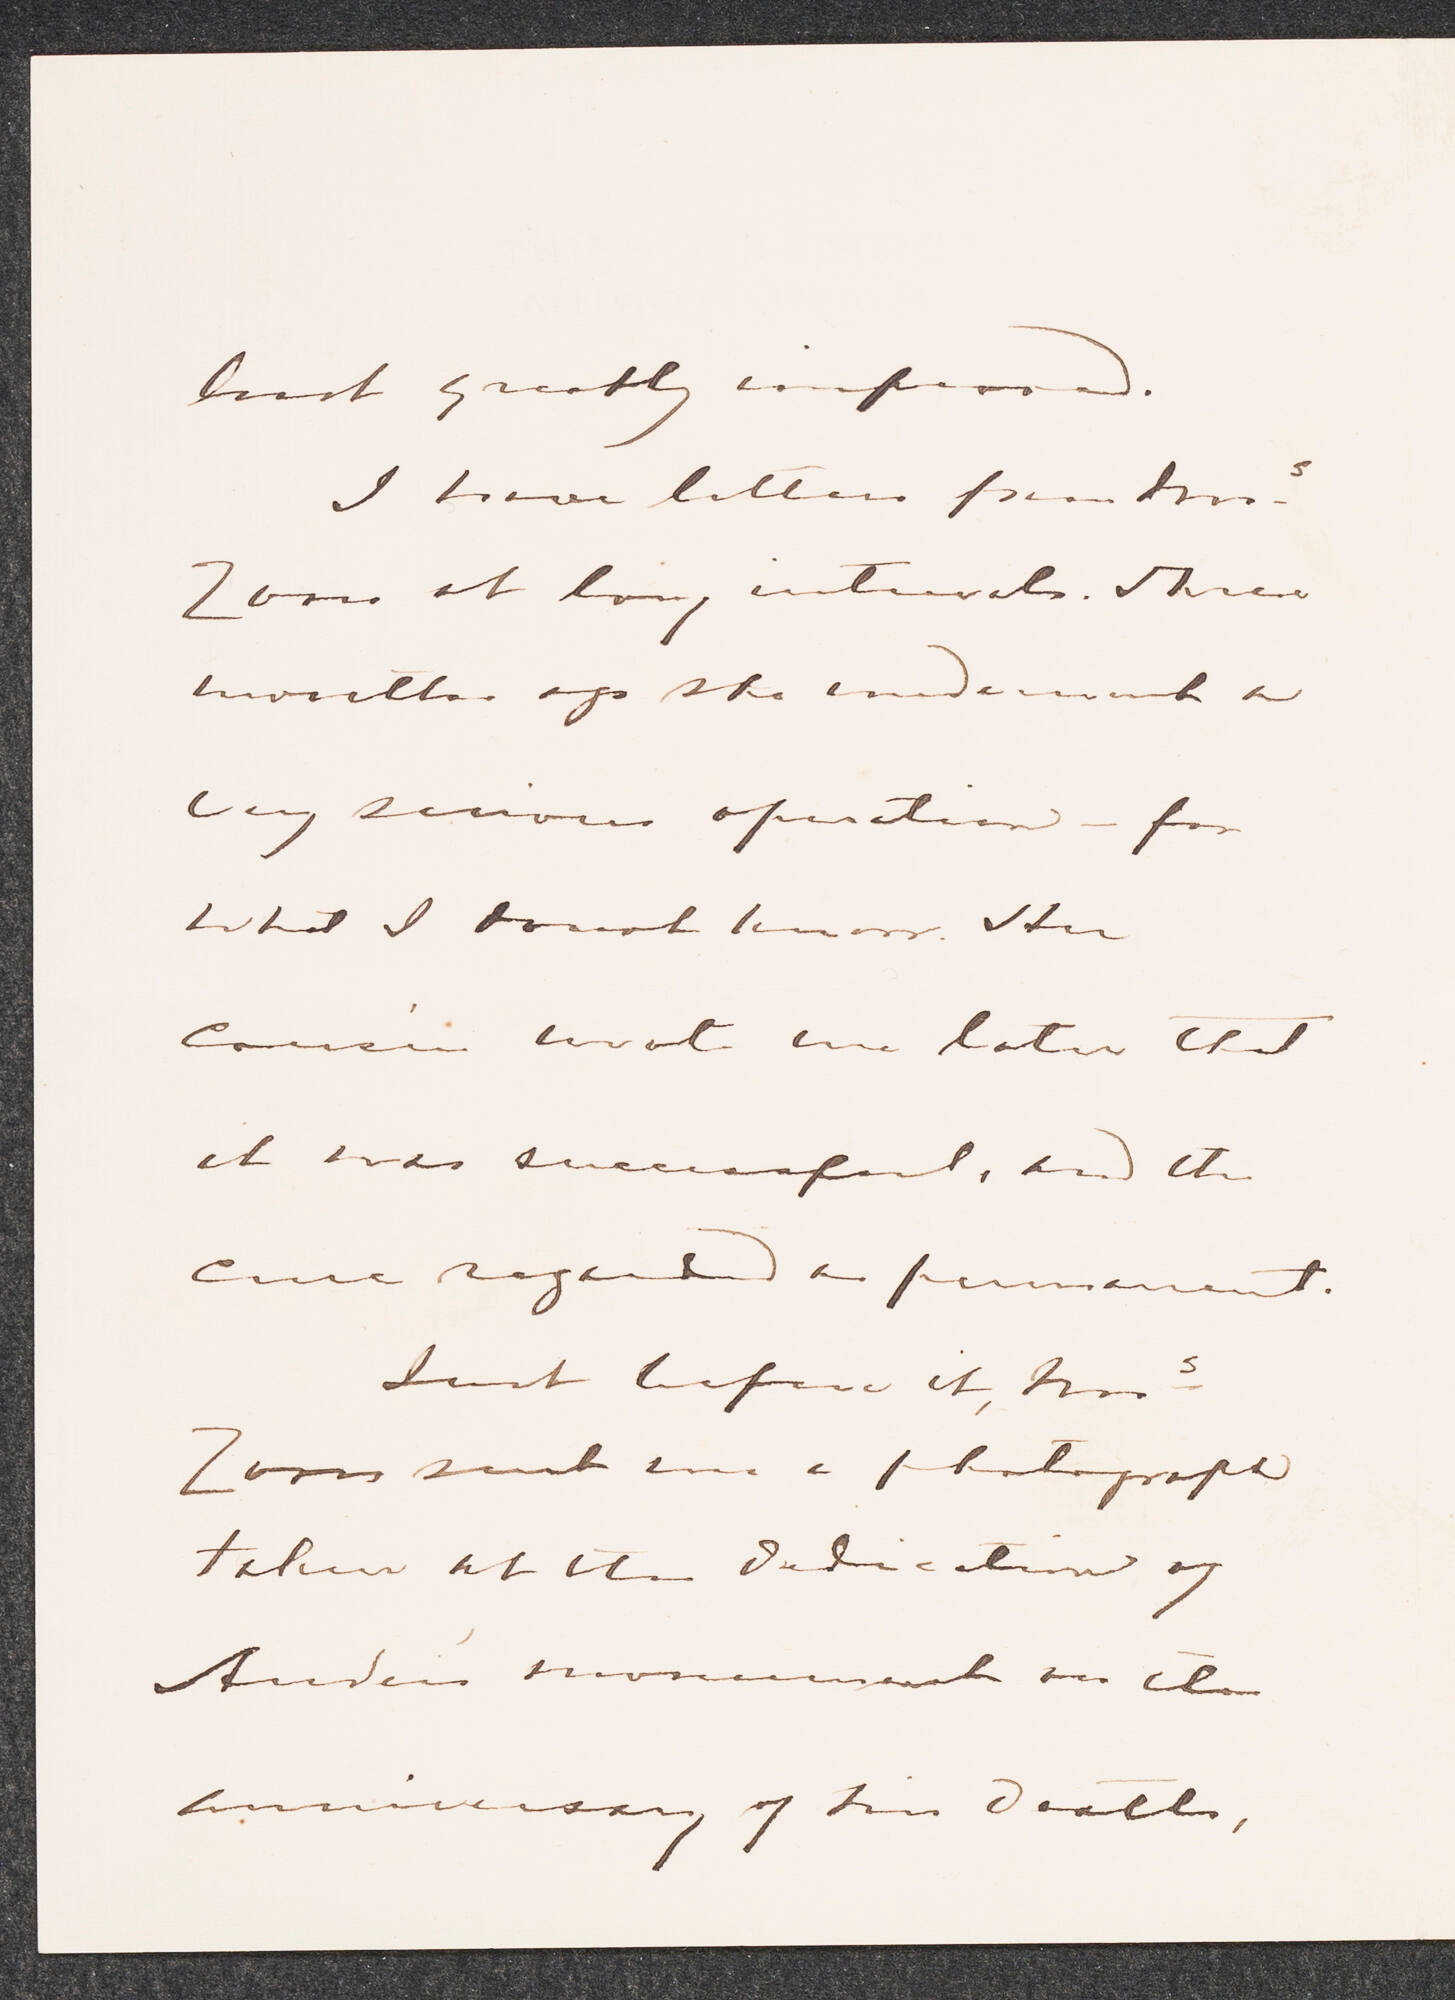 but greatly improved.
I have letters from Mrs
Zorn at long intervals. Three
months ago she underwent a
very serious operation – for
what I do not know. Her
cousin wrote me later that
it was successful, and the
cure regarded as permanent.
Just before it, Mrs
Zorn sent me a photograph
taken at the dedication of
Anders' monument on the
anniversary of his death,